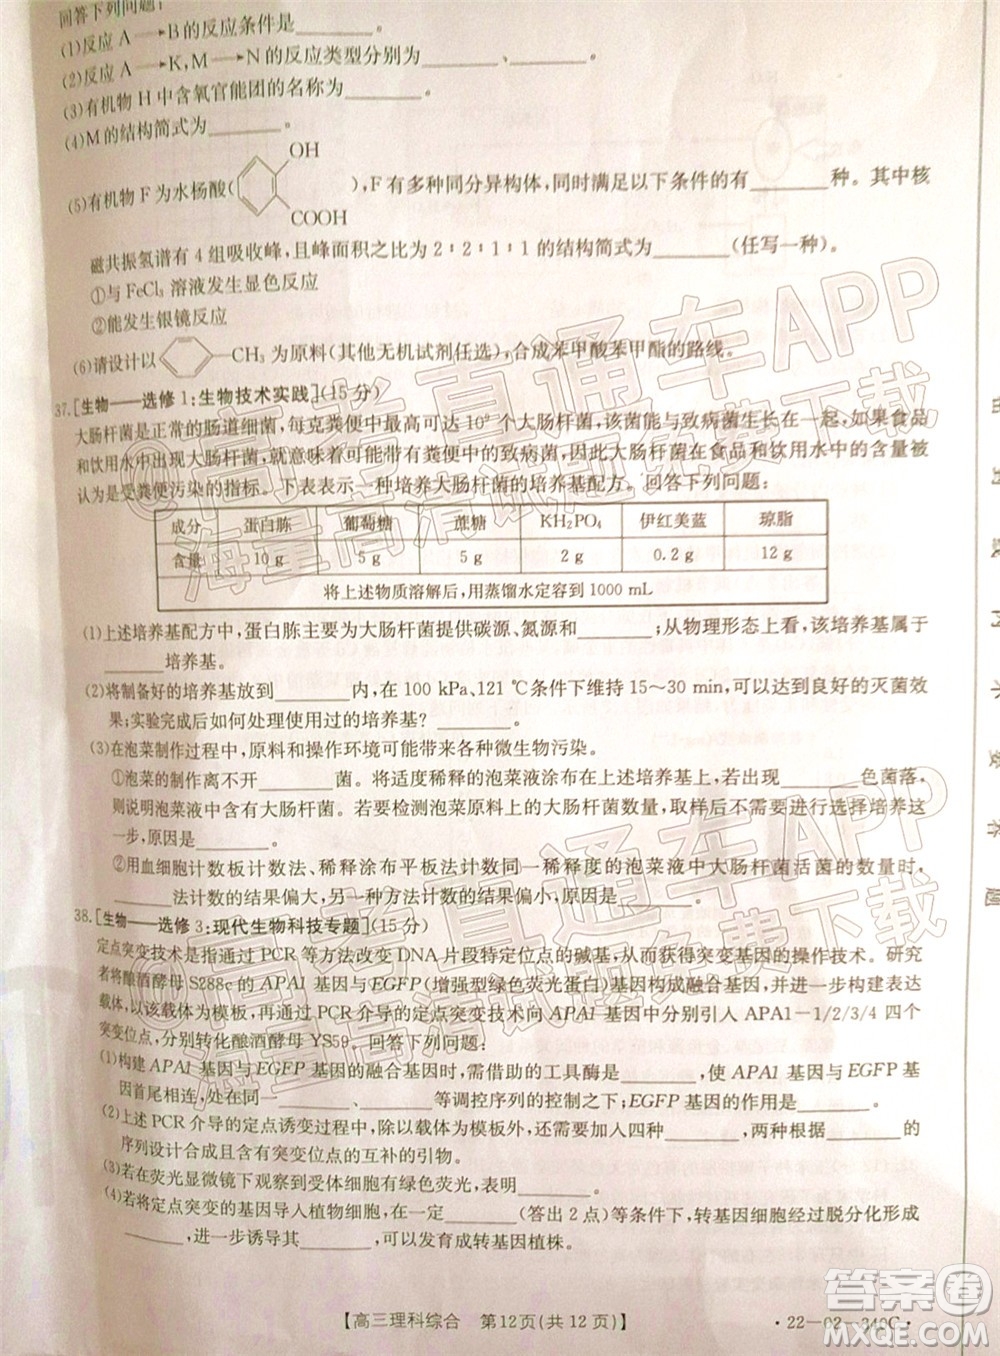 回答下列问题:
(1)反应 A—→B的反应条件是______。
(2)反应 A—→K,M—→N的反应类型分别为______、______。
(3)有机物 H 中含氧官能团的名称为______。
(4)M的结构简式为______。
OH
(5)有机物 F 为水杨酸( ),F 有多种同分异构体,同时满足以下条件的有______种。其中核
COOH
磁共振氢谱有 4 组吸收峰,且峰面积之比为 2∶2∶1∶1 的结构简式为______(任写一种)。
①与 FeCl₃ 溶液发生显色反应
②能发生银镜反应
(6)请设计以 —CH₃ 为原料(其他无机试剂任选),合成苯甲酸苯甲酯的路线。
37.[生物——选修1:生物技术实践](15分)
大肠杆菌是正常的肠道细菌,每克粪便中最高可达 10⁹ 个大肠杆菌,该菌能与致病菌生长在一起,如果食品
和饮用水中出现大肠杆菌,就意味着可能有粪便中的致病菌,因此大肠杆菌在食品和饮用水中的存在被
认为是受粪便污染的指标。下表表示一种培养大肠杆菌的培养基配方。回答下列问题:
成分 蛋白胨 葡萄糖 蔗糖 KH₂PO₄ 伊红美蓝 琼脂
含量 10 g 5 g 5 g 2 g 0.2 g 12 g
将上述物质溶解后,用蒸馏水定容到 1000 mL
(1)上述培养基配方中,蛋白胨主要为大肠杆菌提供碳源、氮源和______;从物理形态上看,该培养基属于
______培养基。
(2)将制备好的培养基放到______内,在 100 kPa、121 ℃条件下维持 15～30 min,可以达到良好的灭菌效
果;实验完成后如何处理使用过的培养基?______。
(3)在泡菜制作过程中,原料和操作环境可能带来各种微生物污染。
①泡菜的制作离不开______菌。将适度稀释的泡菜液涂布在上述培养基上,若出现______色菌落,
则说明泡菜液中含有大肠杆菌。若要检测泡菜原料中的大肠杆菌数量,取样时一般不能选择最外
一步,原因是______。
②用血细胞计数板计数法、稀释涂布平板法计数同一稀释度的泡菜液中大肠杆菌活菌的数量时,
______法计数的结果偏大,两种方法计数的结果偏大的原因是______。
38.[生物——选修3:现代生物科技专题](15分)
定点突变技术是指通过 PCR 等方法改变 DNA 片段特定位点的碱基,从而获得突变基因的操作技术。研究
者将酿酒酵母 S288c 的 APA1 基因与EGFP(增强型绿色荧光蛋白)基因构成融合基因,再以重组质粒为载
体,以其为模板,采用 PCR 介导的定点突变技术向 APA1 基因中分别引入 APA1-1/2/3/4 四个
突变位点,分别转化酿酒酵母 YS59。回答下列问题:
(1)构建 APA1 基因与EGFP基因的融合基因时,需借助的工具酶是______,使 APA1 基因与EGFP基
因首尾相连,处在同一______、______等调控序列的控制之下;EGFP 基因的作用是______。
(2)上述 PCR 介导的定点诱变过程中,除以载体为模板外,还需要加入四种______,两种根据______的
序列设计合成且含有突变位点的互补的引物。
(3)若在荧光显微镜下观察到受体细胞有绿色荧光,说明______。
(4)若将定点突变的基因导入植物细胞,在一定______(答出 2 点)等条件下,转基因植物细胞经过脱分化形成
______,再诱导其______,可以发育成转基因植株。
【高三理科综合 第12页(共 12 页)】
·22-02-340C·
@高考直通车APP
海量高清试题免费下载
@高考直通车APP
海量高清试题免费下载
答案圈
MXQE.COM